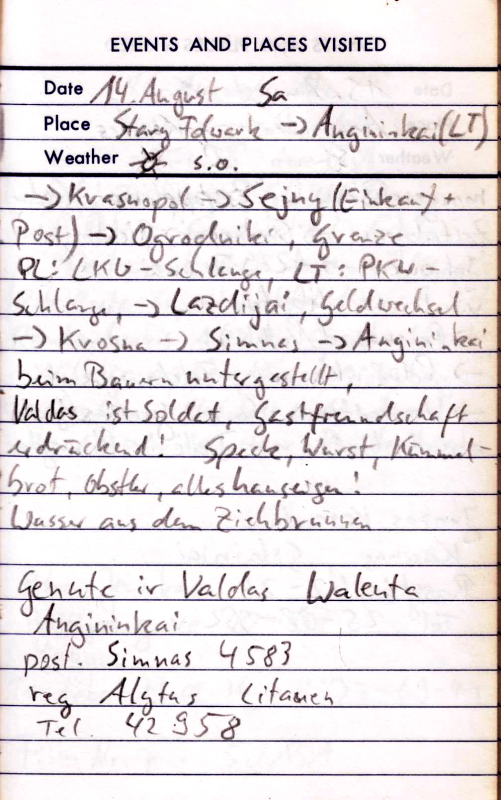 EVENTS AND PLACES VISITED
Date 14. August Sa
Place Stary Folwark -> Angininkai (LT)
Weather s.o.
-> Krasnopol -> Sejny (Einkauf +
Post) -> Ogrodniki, Grenze
PL: LKW - Schlange, LT: PKW -
Schlange, -> Lazdijai, Geldwechsel
-> Krosna -> Simnas -> Angininkai
beim Bauern untergestellt,
Valdas ist Soldat, Gastfreundschaft
erdrückend! Speck, Wurst, Kümmel-
brot, Obstler, alles hauseigen!
Wasser aus dem Ziehbrunnen
Genute ir Valdas Walenta
Angininkai
post. Simnas 4583
reg Alytus Litauen
Tel. 42 958